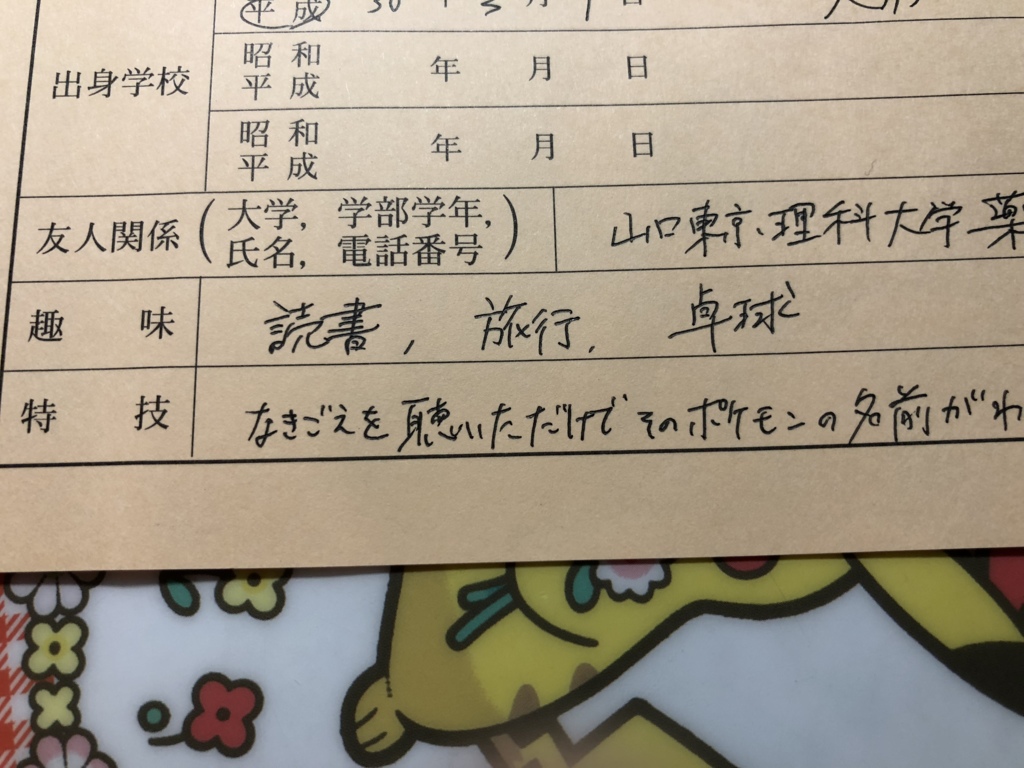 平成 30年3月1日
出身学校
昭和 平成 年 月 日
昭和 平成 年 月 日
友人関係（大学, 学部学年, 氏名, 電話番号） 山口東京理科大学 薬
趣味 読書, 旅行, 卓球
特技 なきごえを聴いただけでそのポケモンの名前がわ